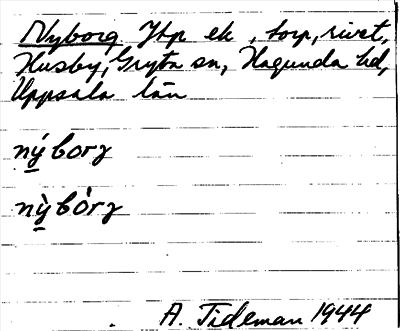 Nyborg, Jtp ek, torp, rivet,
Husby, Gryta sn, Hagunda hd,
Uppsala län
nýborg
nỳbórg
A. Tideman 1944